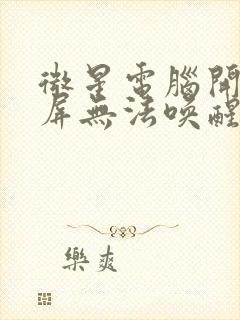 微星電腦開
屏無法喚醒
樂爽